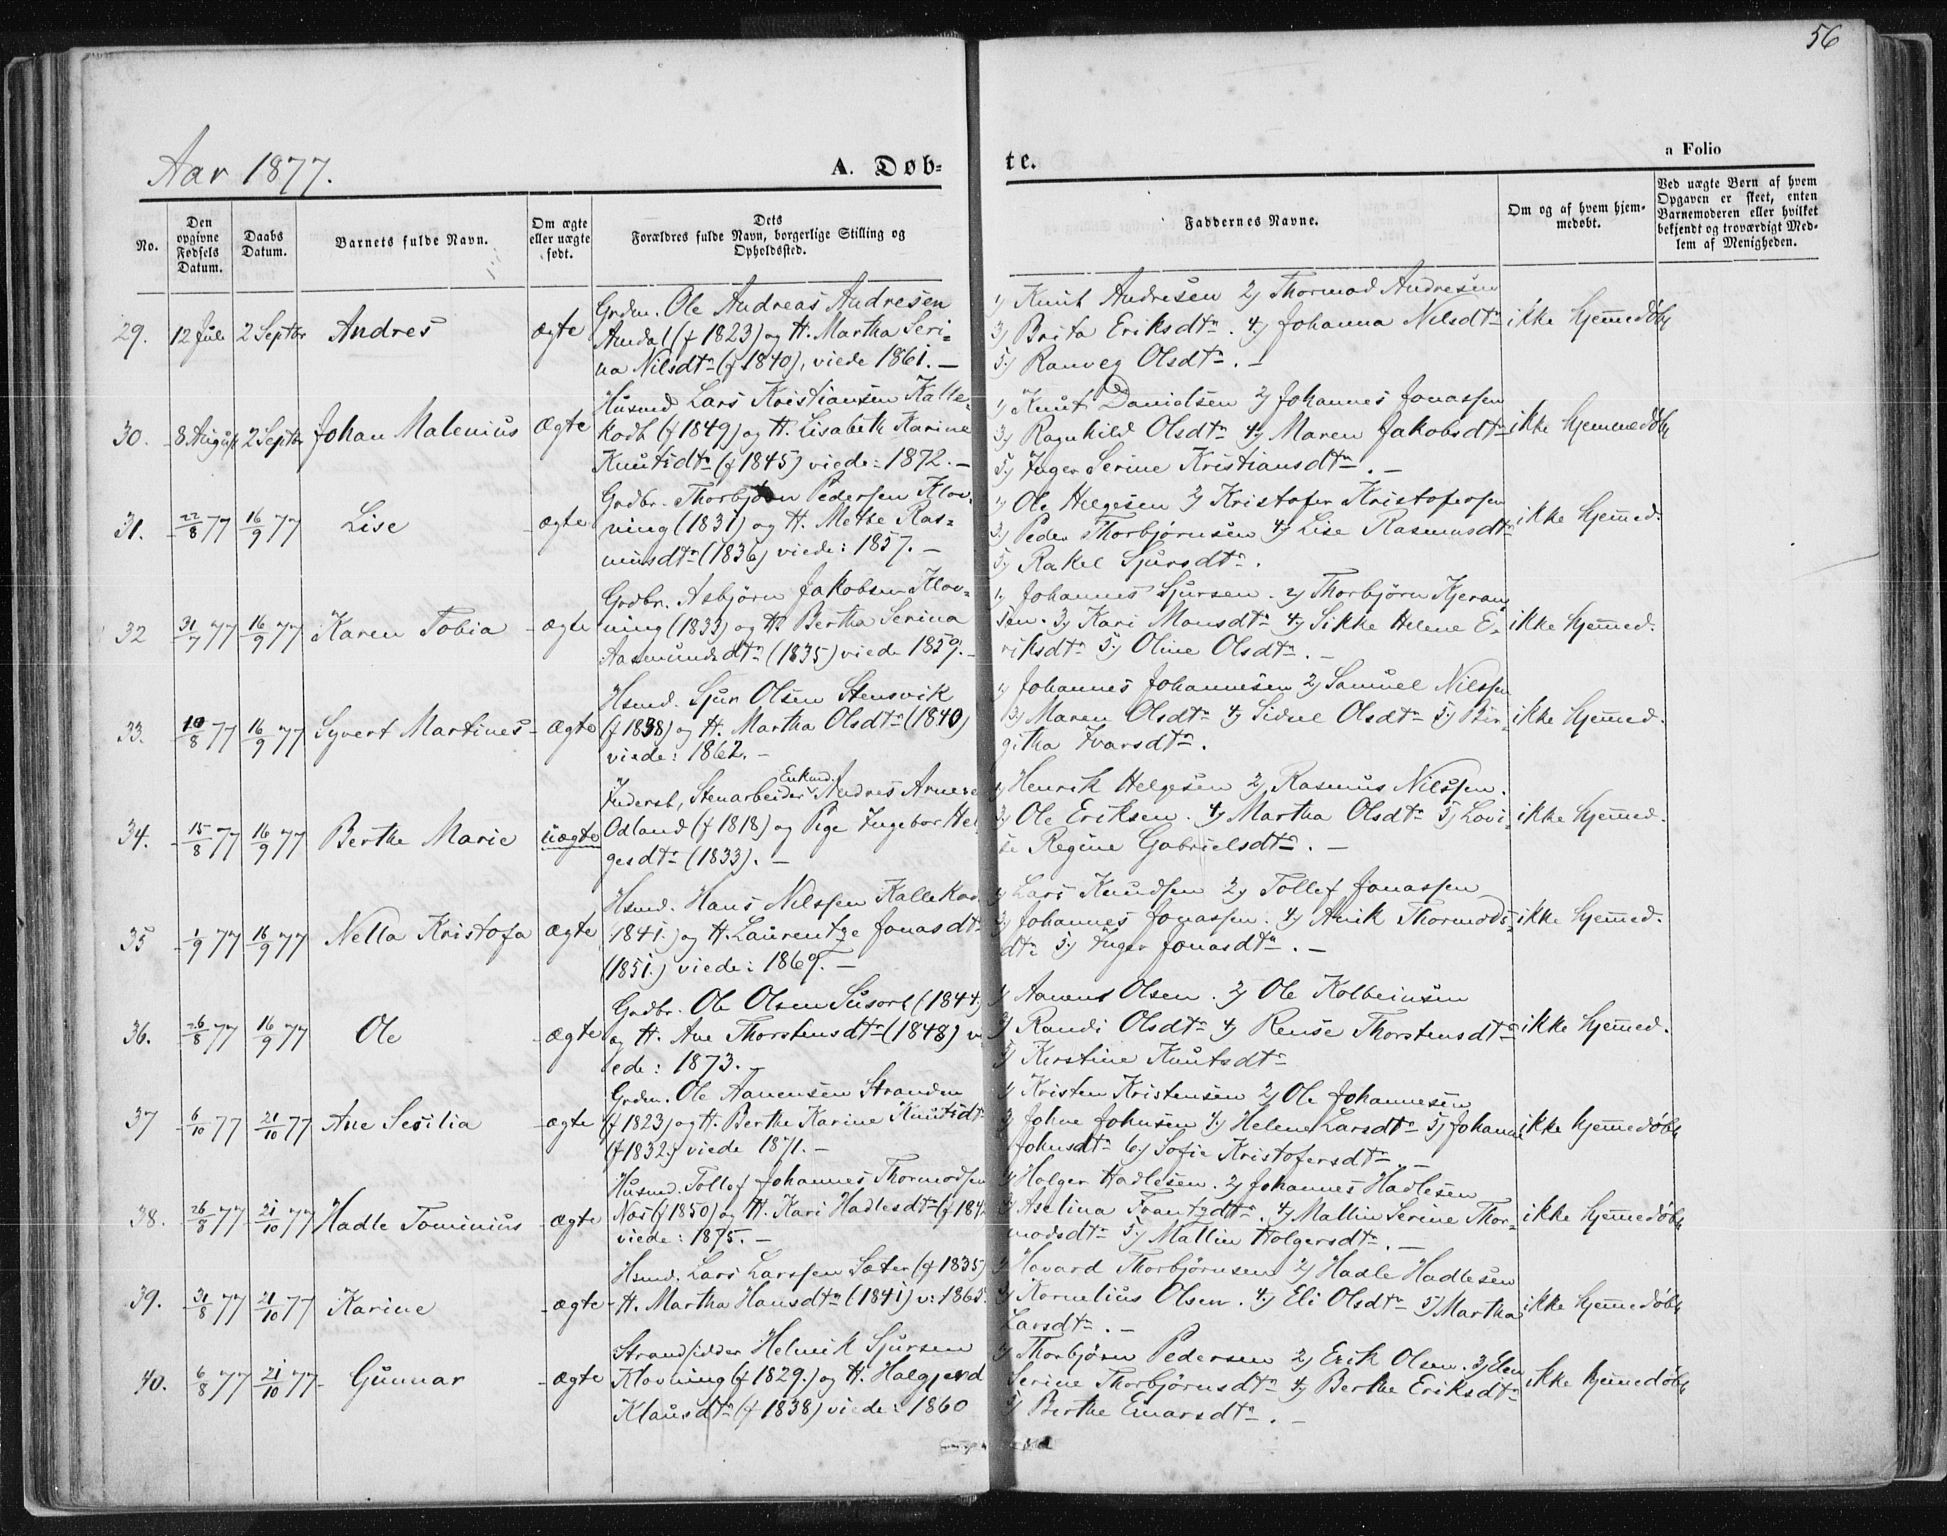 56
Aar 1877.
A. Døb-
te.
a Folio
No.
Den opgivne Fødsels Datum.
Daabs Datum.
Barnets fulde Navn.
Om ægte eller uægte født.
Dets Forældres fulde Navn, borgerlige Stilling og Opholdssted.
Faddernes Navne.
Om og af hvem hjemmedøbt.
Ved uægte Børn af hvem Opgaven er skeet, enten Barnemoderen eller hvilket bekjendt og troværdigt Medlem af Menigheden.
29. 12 Juli 2 Septbr Andres ægte
Grdm. Ole Andreas Andresen
Amdal (f 1823) og H. Martha Seri-
na Nilsdtr (f 1840), viede 1861. —
1) Knut Andresen 2) Thormod Andresen
3) Brita Eriksdtr. 4) Johanna Nilsdtr
5) Ranveg Olsdtr. —
ikke hjemmedøbt
30. 8 August 2 Septbr Johan Malenius ægte
Husmd Lars Kristiansen Kalle-
kodt (f 1849) og H. Lisabeth Karine
Knutsdtr (f 1845) viede: 1872. —
1) Knut Danielsen 2) Johannes Jonassen
3) Ragnhild Olsdtr 4) Maren Jakobsdtr
5) Inger Serine Kristiansdtr. —
ikke hjemmedøbt
31. 22/8 77 16/9 77 Lise ægte
Grdbr. Thorbjørn Pedersen Klov-
ning (1831) og H. Mette Ras-
musdtr (1836) viede: 1857. —
1) Ole Helgesen 2) Kristofer Kristofersen
3) Peder Thorbjørnsen 4) Lise Rasmusdtr
5) Rakel Sjursdtr.
ikke hjemmed.
32 31/7 77 16/9 77 Karen Tobia ægte
Grdbr. Asbjørn Jakobsen Klov-
ning (1833) og H. Bertha Serina
Aasmundsdtr (1835) viede 1859. —
1) Johannes Sjursen. 2) Thorbjørn Kjeran
sen. 3) Kari Monsdtr 4) Sikke Helene E-
riksdtr 5) Oline Olsdtr. —
ikke hjemmed.
33. 10/8 77 16/9 77 Syvert Martines ægte
Hsmd. Sjur Olsen Stensvik
(f 1838) og H. Martha Olsdtr (1840)
viede: 1862. —
1) Johannes Johannesen 2) Samuel Nilssen
3) Maren Olsdtr 4) Sidne Olsdtr 5) Bir-
githa Ivarsdtr.
ikke hjemmed.
34. 15/8 77 16/9 77 Berthe Marie uægte
Enkmd.
Inderst, Stenarbeider Andres Arnese
Odland (f 1818) og Pige Ingebor Hel
gesdtr (1833). —
1) Henrik Helgesen 2) Rasmus Nilssen.
3) Ole Eriksen. 4) Martha Olsdtr 5) Lovi-
se Regine Gabrielsdtr. —
ikke hjemmed.
35 1/9 77 16/9 77 Nella Kristofa ægte
Hsmd. Hans Nilssen Kallekod
1841.) og H. Laurentze Jonasdtr
(1851.) viede: 1869. —
1) Lars Knudsen 2) Tollef Jonassen
3) Johannes Jonassen. 4) Anik Thormods-
dtr 5) Inger Jonasdtr. —
ikke hjemmed.
36. 26/8 77 16/9 77 Ole ægte
Grdbr. Ole Olsen Susort (1844)
og H. Ane Thorstensdtr (1848) vi
ede: 1873. —
1) Aanens Olsen. 2) Ole Kolbeinsen
3) Randi Olsdtr 4) Rense Thorstensdtr
5) Kerstine Knutsdtr
ikke hjemmed.
37 6/10 77 21/10 77 Ane Sesilia ægte
Grdm. Ole Aanensen Stranden
(f 1823) og H. Berthe Karine Knutsdtr
(f 1832) viede 1871. —
1) Kristen Kristensen 2) Ole Johannesen
3) Johne Johnsen 4) Helene Larsdtr 5) Johanne
Johnsdtr 6) Sofie Kristofersdtr. —
ikke hjemmedøbt
38. 26/8 77 21/10 77 Hadle Tominius ægte
Husmd. Tollef Johannes Thormodsen
Næs (f 1850) og H. Kari Hadlesdtr (f 184
viede: 1875. —
1) Holger Hadlesen. 2) Johannes Hadlesen
3) Aselina Frantzdtr. 4) Mallin Serine Thor-
modsdtr 5) Mallin Holgersdtr. —
ikke hjemmedøbt
39. 31/8 77 21/10 77 Karine ægte
Hsmd. Lars Larssen Sæter (f 1835)
H. Martha Hansdtr (1841) v: 1865.
1) Havard Thorbjørnsen 2) Hadle Hadlesen
3) Kornelius Olsen. 4) Eli Olsdtr 5) Martha
Larsdtr. —
ikke hjemmedøbt
40. 6/8 77 21/10 77 Gunnar ægte
Strandsidder Helmik Sjursen
Klovning (f 1829.) og H. Halgjerd
Klausdtr (f 1838) viede: 1860
1) Thorbjørn Pedersen 2) Erik Olsen. 3) Elen
Serine Thorbjørnsdtr 4) Berthe Eriksdtr
5) Berthe Einarsdtr. —
ikke hjemmedøbt